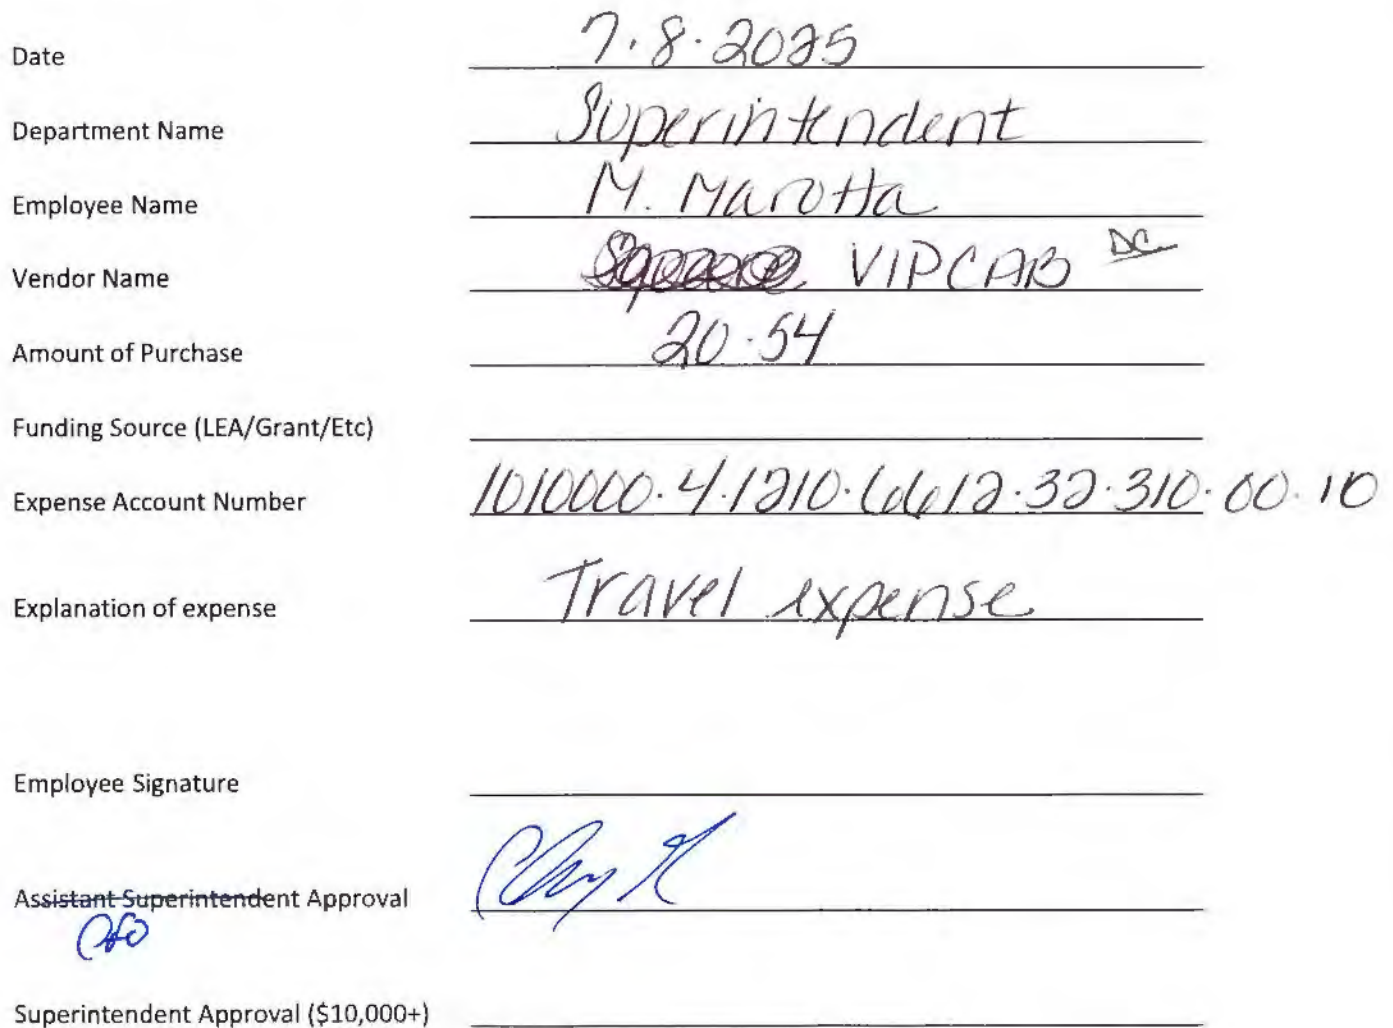 Date 7.8.2025
Department Name Superintendent
Employee Name M. Marotta
Vendor Name VIPCAB DC
Amount of Purchase 20.54
Funding Source (LEA/Grant/Etc)
Expense Account Number 1010000.4.1210.6612.32.310.00.10
Explanation of expense Travel expense
Employee Signature
Assistant Superintendent Approval
CFO
Superintendent Approval ($10,000+)